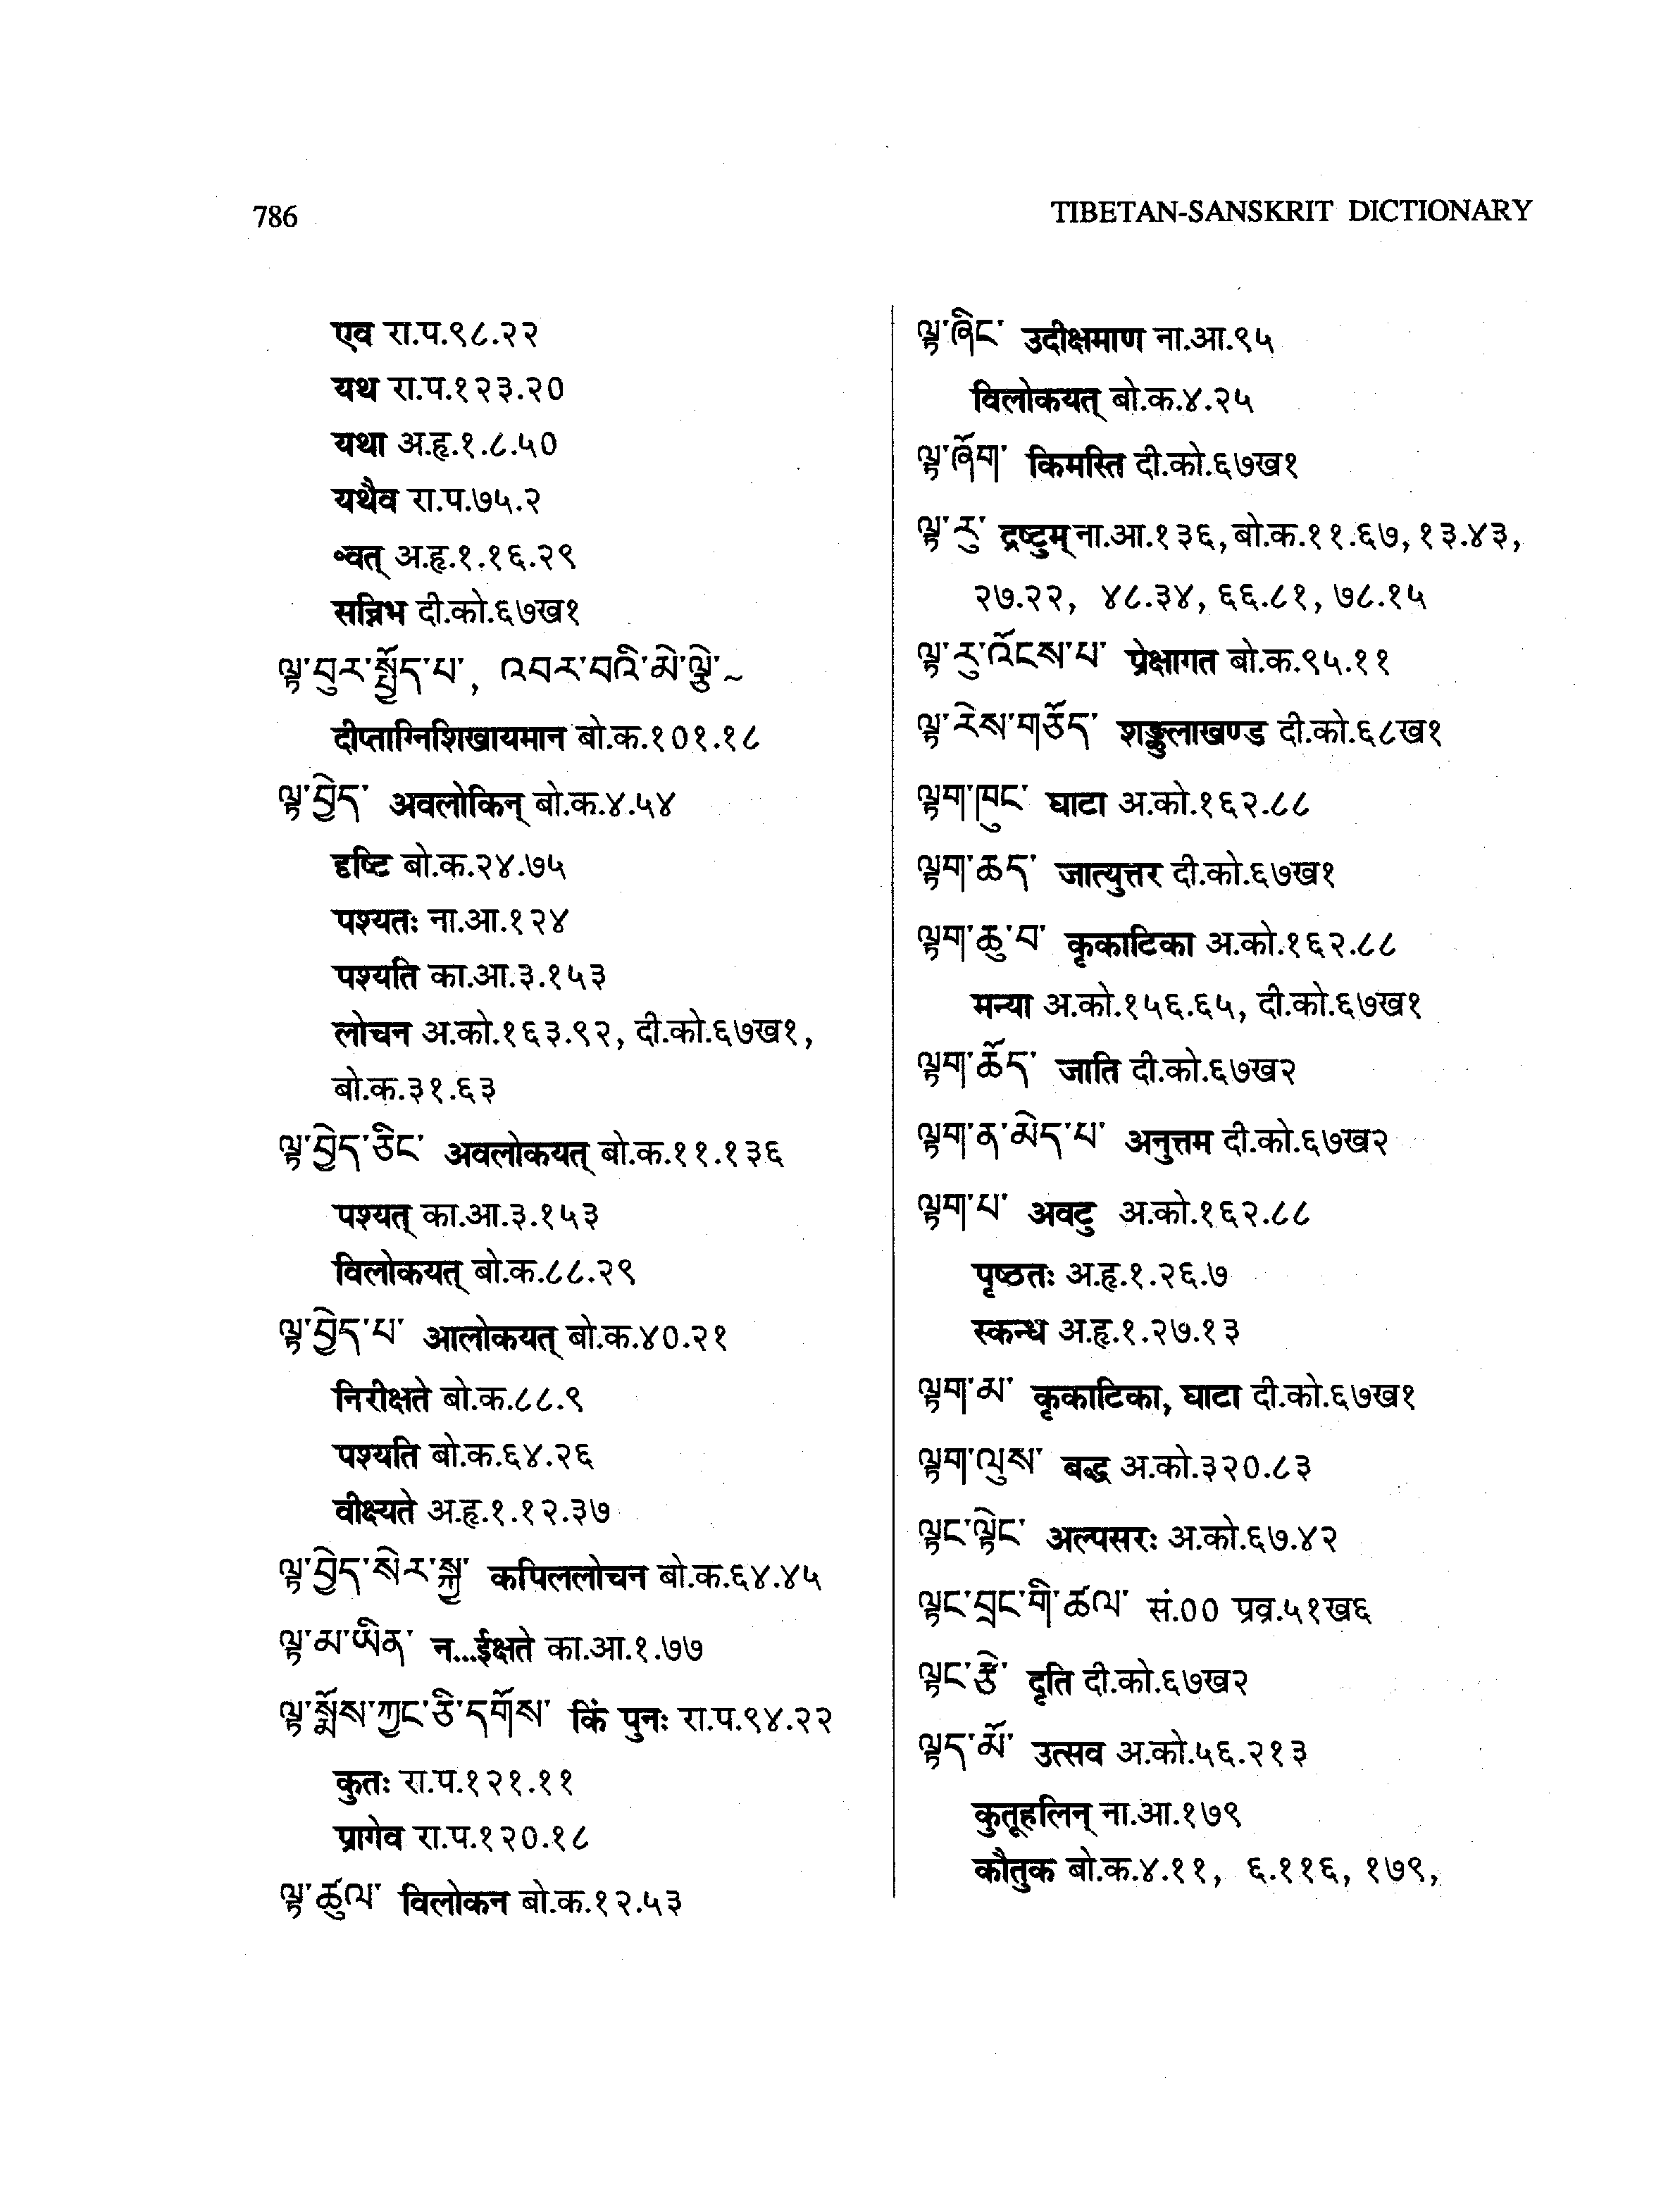 786
TIBETAN-SANSKRIT DICTIONARY
एव रा.प.९८.२२
यथ रा.प.१२३.२०
यथा अ.हृ.१.८.५०
यथैव रा.प.७५.२
॰वत् अ.हृ.१.१६.२९
सन्निभ दी.को.६७ख१
ལྟ་བུར་སྤྱོད་པ་, འབར་བའི་མེ་ལྕེ་~
दीप्ताग्निशिखायमान बो.क.१०१.१८
ལྟ་བྱེད་ अवलोकिन् बो.क.४.५४
दृष्टि बो.क.२४.७५
पश्यतः ना.आ.१२४
पश्यति का.आ.३.१५३
लोचन अ.को.१६३.९२, दी.को.६७ख१,
बो.क.३१.६३
ལྟ་བྱེད་ཅིང་ अवलोकयत् बो.क.११.१३६
पश्यत् का.आ.३.१५३
विलोकयत् बो.क.८८.२९
ལྟ་བྱེད་པ་ आलोकयत् बो.क.४०.२१
निरीक्षते बो.क.८८.९
पश्यति बो.क.६४.२६
वीक्ष्यते अ.हृ.१.१२.३७
ལྟ་བྱེད་སེར་སྐྱ་ कपिललोचन बो.क.६४.४५
ལྟ་མ་ཡིན་ न...ईक्षते का.आ.१.७७
ལྟ་སྨོས་ཀྱང་ཅི་དགོས་ किं पुनः रा.प.९४.२२
कुतः रा.प.१२१.११
प्रागेव रा.प.१२०.१८
ལྟ་ཚུལ་ विलोकन बो.क.१२.५३
ལྟ་ཞིང་ उदीक्षमाण ना.आ.९५
विलोकयत् बो.क.४.२५
ལྟ་ཞོག་ किमस्ति दी.को.६७ख१
ལྟ་རུ་ द्रष्टुम् ना.आ.१३६, बो.क.११.६७, १३.४३,
२७.२२, ४८.३४, ६६.८१, ७८.१५
ལྟ་རུ་འོངས་པ་ प्रेक्षागत बो.क.९५.११
ལྟ་རེས་གཅོད་ शङ्कुलाखण्ड दी.को.६८ख१
ལྟག་ཁུང་ घाटा अ.को.१६२.८८
ལྟག་ཆད་ जात्युत्तर दी.को.६७ख१
ལྟག་ཆུ་བ་ कृकाटिका अ.को.१६२.८८
मन्या अ.को.१५६.६५, दी.को.६७ख१
ལྟག་ཆོད་ जाति दी.को.६७ख२
ལྟག་ན་མེད་པ་ अनुत्तम दी.को.६७ख२
ལྟག་པ་ अवटु अ.को.१६२.८८
पृष्ठतः अ.हृ.१.२६.७
स्कन्ध अ.हृ.१.२७.१३
ལྟག་མ་ कृकाटिका, घाटा दी.को.६७ख१
ལྟག་ལུས་ बद्ध अ.को.३२०.८३
ལྟང་ལྟེང་ अल्पसरः अ.को.६७.४२
ལྟང་བྲང་གི་ཚལ་ सं.०० प्रव्र.५१ख६
ལྟང་རྩེ་ दृति दी.को.६७ख२
ལྟད་མོ་ उत्सव अ.को.५६.२१३
कुतूहलिन् ना.आ.१७९
कौतुक बो.क.४.११, ६.११६, १७९,